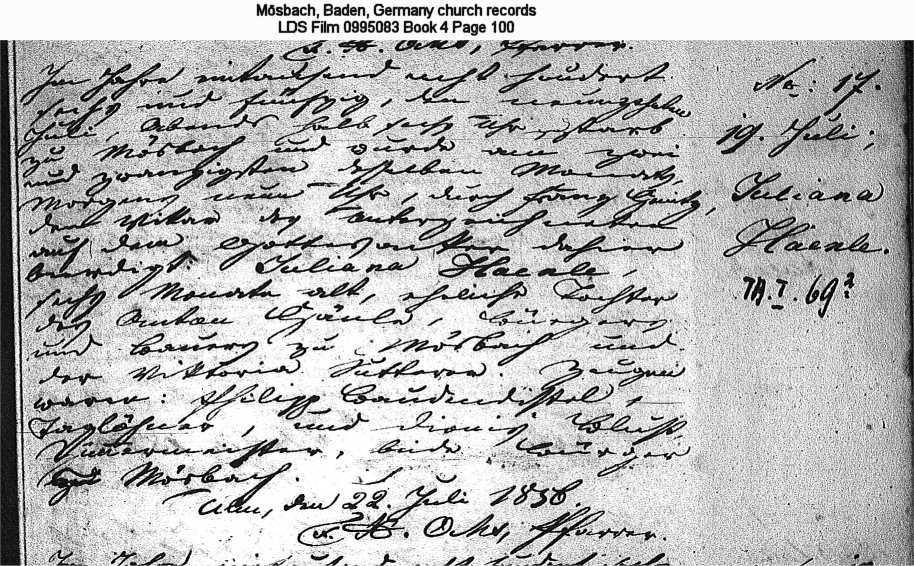 Mösbach, Baden, Germany church records
LDS Film 0995083 Book 4 Page 100
Ochs, Pfarrer.
Im Jahre eintausend acht hundert
sechs und fünfzig, den neunzehnten
Juli, Abends halb sechs Uhr, starb
zu Mösbach und wurde am zwei
und zwanzigsten desselben Monats,
Morgens neun Uhr, durch Franz
dem Vikar des Unterzeichneten
auf dem Gottesacker dahier
beerdigt: Juliana Haenle,
sechs Monate alt, eheliche Tochter
des Anton Hänle, Bürgers
und Bauers zu Mösbach und
der Viktoria Sutterer. Zeugen
waren: Philipp Baudendistel,
Taglöhner, und Dionis
beide Bürger
zu Mösbach.
Ulm, den 22. Juli 1856.
Ochs, Pfarrer.
No: 17.
19. Juli;
Juliana
Haenle.
Th. I. 69